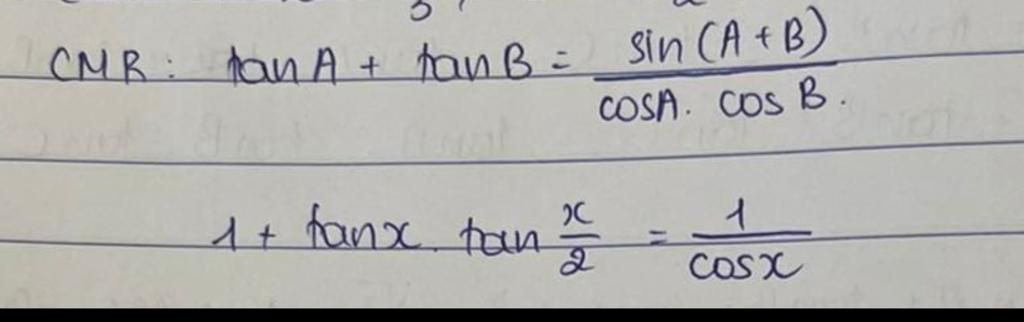 CMR: tan A + tan B = sin(A+B) / cosA. cos B.
1 + tanx. tan x/2 = 1/cosx